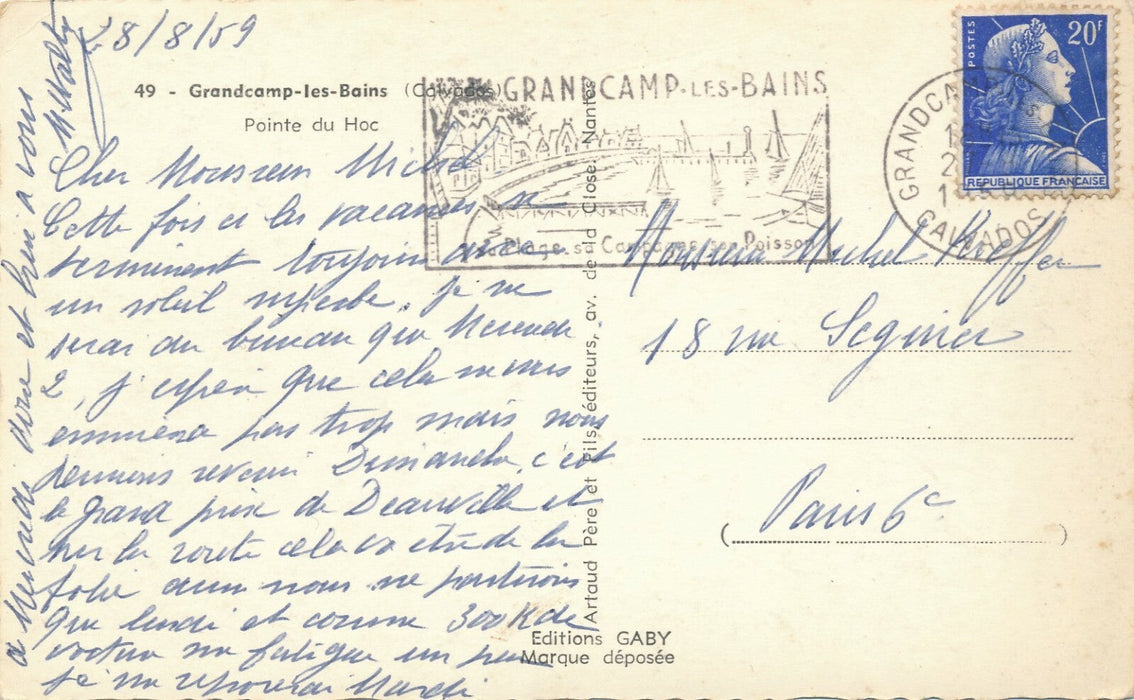 28/8/59
49 - Grandcamp-les-Bains (Calvados)
Pointe du Hoc
Cher Monsieur Michel
Cette fois ci les vacances se
terminent toujours avec
un soleil superbe. je ne
serai au bureau que Mercredi
2, j'espère que cela ne vous
ennuiera pas trop mais nous
devions revenir Dimanche, c'est
le grand prix de Deauville et
sur la route cela va être de la
folie aussi nous ne partirons
que lundi et comme 300 K de
voiture me fatigue un peu
je me reposerai Mardi
à Mercredi donc et bien à vous
GRANDCAMP-LES-BAINS
sa Plage sa Campagne son Poisson
GRANDCAMP
CALVADOS
POSTES
20F
REPUBLIQUE FRANÇAISE
Monsieur Michel
18 rue Seguier
Paris 6e
Artaud Père et Fils, éditeurs, av. de la Close. Nantes
Editions GABY
Marque déposée